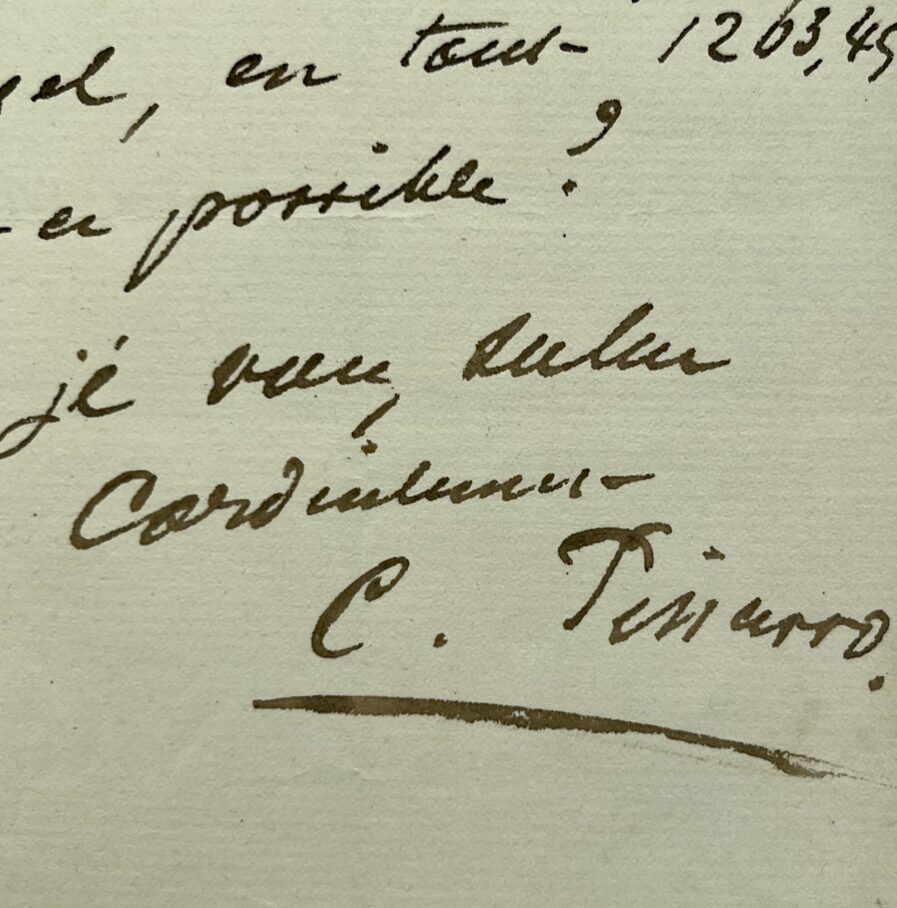 el, en tout 1203,45
possible ?
je vous salue
Cordialement
C. Pissarro.